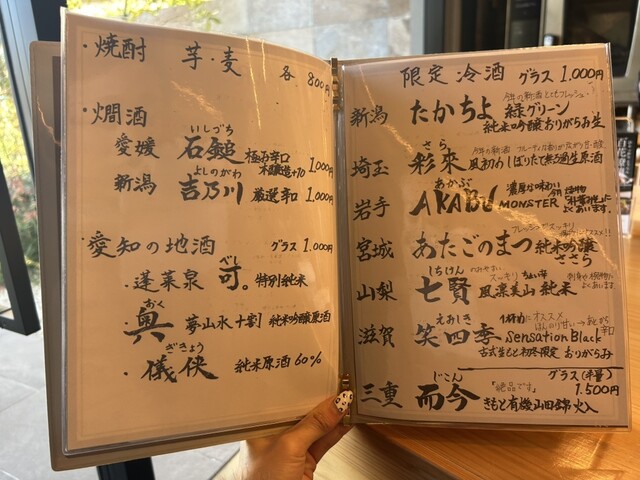 ・焼酎 芋・麦 各 800円
・燗酒
いしづち
愛媛 石鎚 極み辛口
本醸造+10 1,000円
よしのがわ
新潟 吉乃川 厳選辛口 1,000円
・愛知の地酒 グラス 1,000円
べし
・蓬莱泉 可。特別純米
おく
・奥 夢山水十割 純米吟醸原酒
ぎきょう
・儀侠 純米原酒60%
限定冷酒 グラス 1,000円
新潟 たかちよ 緑グリーン
純米吟醸おりがらみ生
さら
埼玉 彩來
しぼりたて無ろ過生原酒
あかぶ
岩手 AKABU MONSTER
濃厚な味わい
よくあいます。
フレッシュでスッキリ
宮城 あたごのまつ 純米吟醸
ささら
しちけん
スッキリ ちょい辛
山梨 七賢 風凛美山 純米
よくあいます。
えおしき
1杯めにオススメ
滋賀 笑四季 Sensation Black
古式生もと初冬限定 おりがらみ
グラス(半量)
じこん
『絶品です』
1,500円
三重 而今 きもと有機山田錦 火入